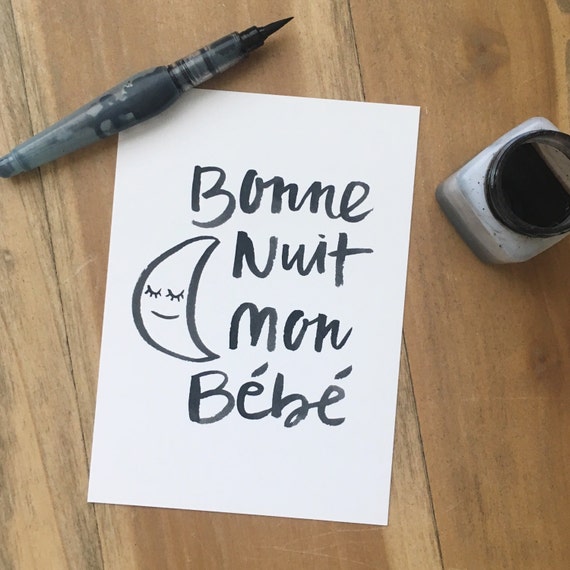 Bonne
Nuit
mon
Bébé